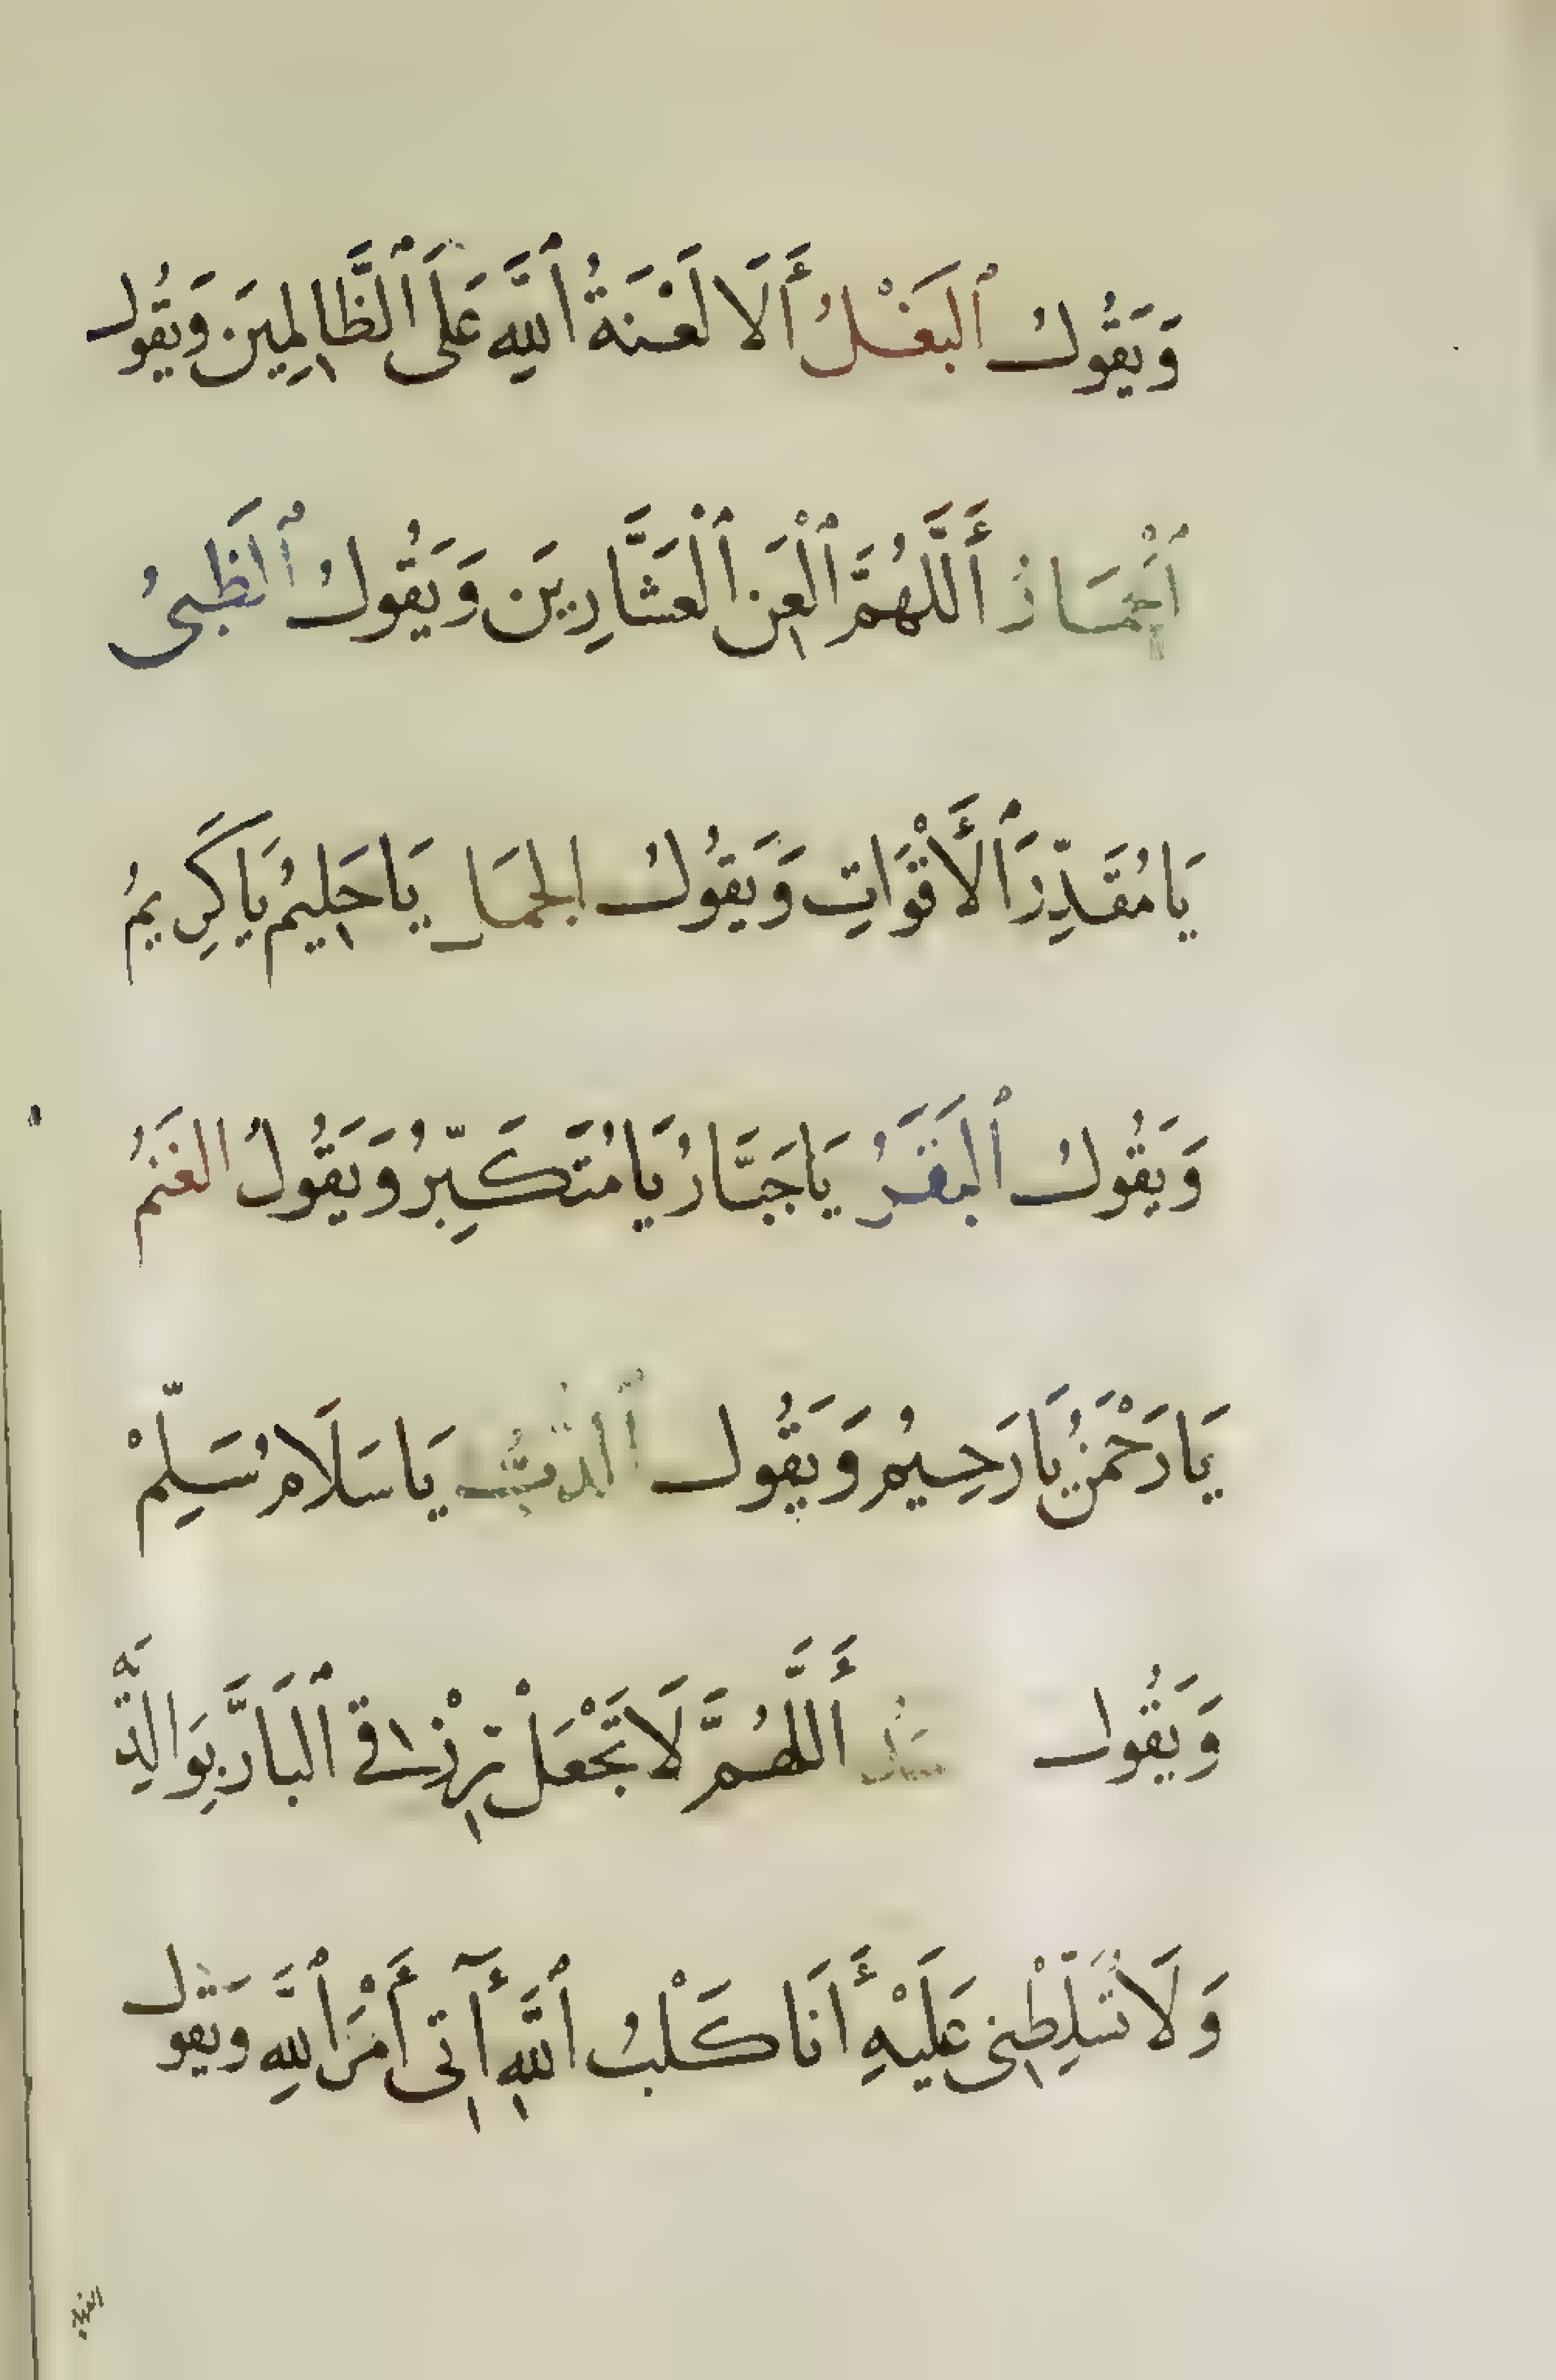 وَيَقُولُ ٱلبَغْلُ أَلَا لَعْنَةُ ٱللَّهِ عَلَى ٱلظَّالِمِينَ وَيَقُول
ٱلْحِمَارُ أَللَّهُمَّ ٱلْعَنِ ٱلْعَشَّارِينَ وَيَقُولُ ٱلظَبىُ
يَا مُقَدِّرَ ٱلْأَقْوَاتِ وَيَقُولُ الجمَل يَا حَلِيمُ يَا كَرِيمُ
وَيَقُولُ ٱلبَقَرُ يَا جَبَّارُ يَا مُتَكَبِّرُ وَيَقُولُ الغَنَمُ
يَا رَحْمَنُ يَا رَحِيمُ وَيَقُول ٱلدُّبُّ يَا سَلَامُ سَلِّمْ
وَيَقُول أَللَّهُمَّ لَا تَجْعَلْ رِزْقى ٱلبَارَّ بِوَالِدَيْهِ
وَلَا تُسَلِّطْنِى عَلَيْهِ أَنَا كَلْبُ ٱللَّهِ آتِى أَمْرَ ٱللَّهِ وَيَقُول